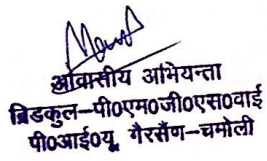 आवासीय अभियन्ता
ब्रिडकुल-पी०एम०जी०एस०वाई
पी०आई०यू० गैरसैंण-चमोली